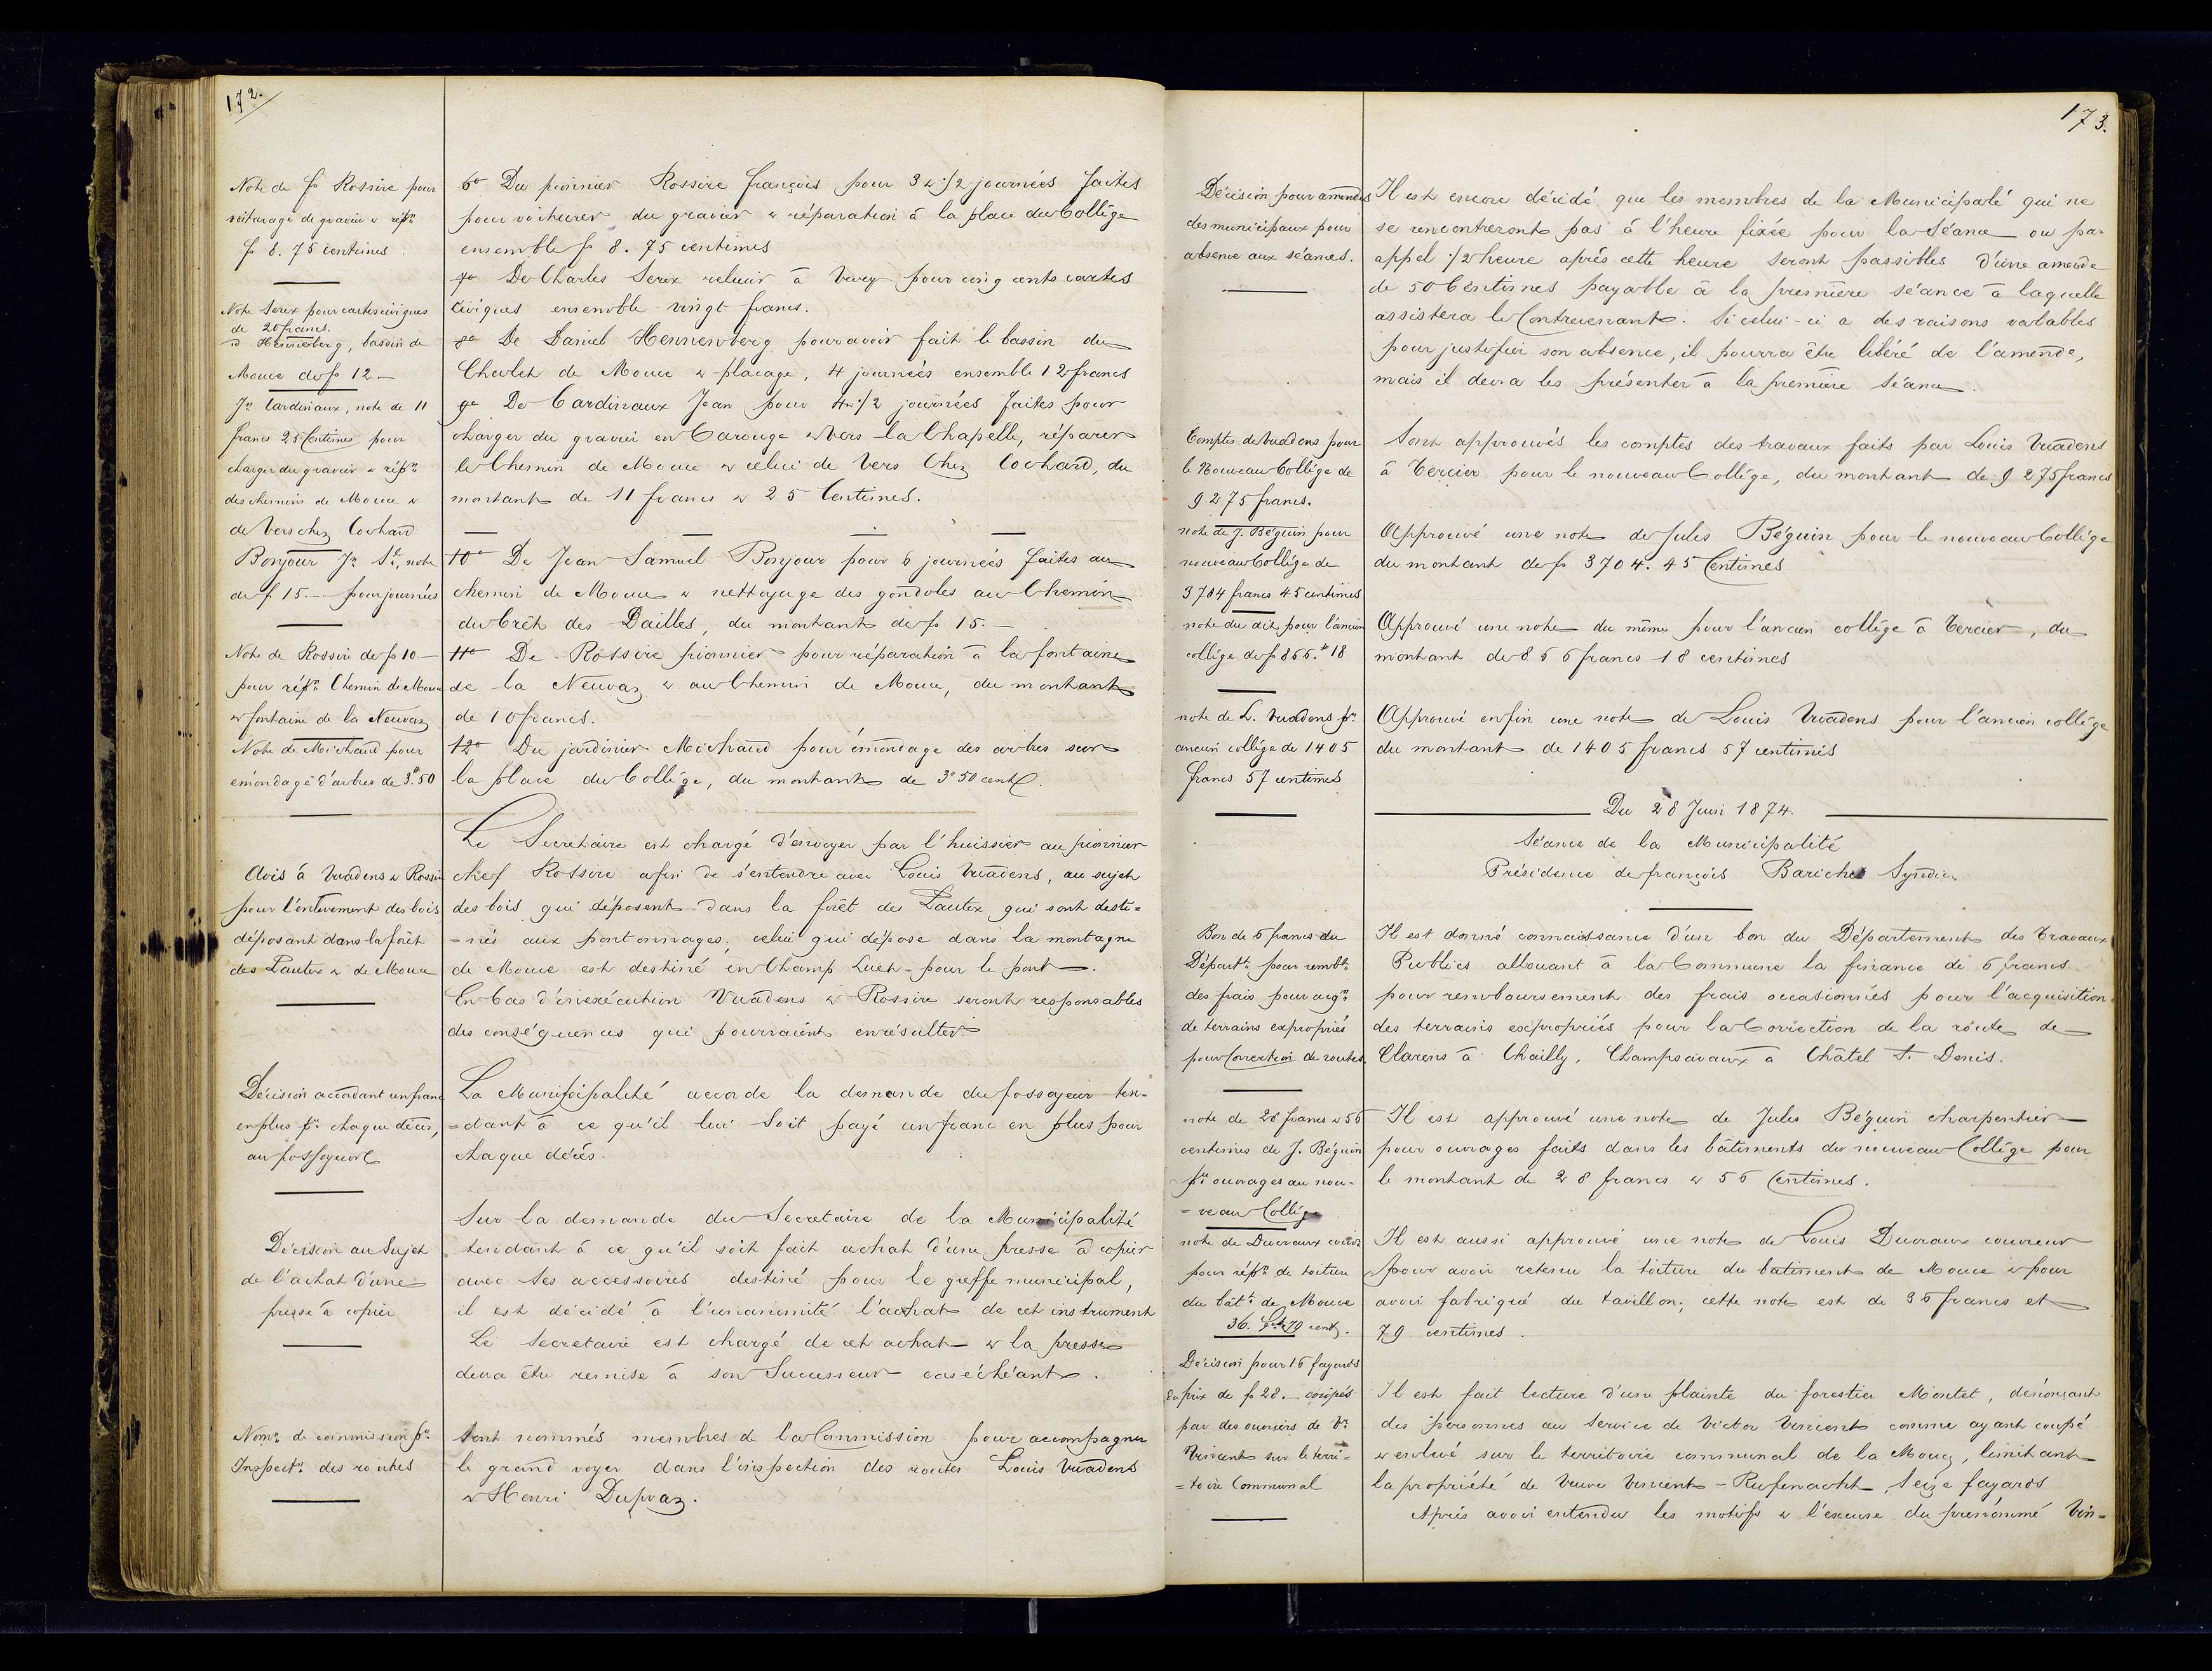 172.
Note de fs Rossire pour
voiturage de gravier & répn
fs 8. 75 centimes
Note Serex pour cartes civiques
de 20 francs.
" Hennenberg, bassin de
Mouce de fs 12 —
Jn Cardinaux, note de 11
francs 25 Centimes pour
charger du gravier & répn
des chemins de Mouce &
de Vers chez Cochard
Bonjour Jn Sl, note
de f. 15.— pour journées
Note de Rossire de fs 10 —
pour répn Chemin de Mouce
& fontaine de la Neuvaz
Note de Michaud pour
émondage d'arbres de 3.fr 50
Avis à Vuadens & Rossire
pour l'enlèvement des bois
déposant dans la forêt
des Pautex & de Mouce
Décision accordant un franc
en plus pr chaque décès,
au fossoyeur
Décision au Sujet
de l'achat d'une
presse à copier
Nomn de commission pr
Inspectn des routes
6o Du pionnier Rossire françois pour 3 & 1/2 journées faites
pour voiturer du gravier & réparation à la place du Collège
ensemble fs 8. 75 centimes
7o De Charles Serex relieur à Vevey pour cinq cents cartes
civiques ensemble vingt francs.
8o De Daniel Hennenberg pour avoir fait le bassin du
Chalet de Mouce & placage, 4 journées ensemble 12 francs
9o De Cardinaux Jean pour 4 & 1/2 journées faites pour
charger du gravier en Carouge & Vers la Chapelle, réparer
le Chemin de Mouce & celui de Vers Chez Cochard, du
montant de 11 francs & 25 Centimes.
10o De Jean Samuel Bonjour pour 6 journées faites au
chemin de Mouce & nettoyage des gondoles au Chemin
du Crêt des Dailles, du montant de fs 15.—
11o De Rossire pionnier pour réparation à la fontaine
de la Neuvaz & au Chemin de Mouce, du montant
de 10 francs.
12o Du jardinier Michaud pour émondage des arbres sur
la place du Collège, du montant de 3" 50 cent.
Le Secretaire est chargé d'envoyer par l'huissier au pionnier
chef Rossire afin de s'entendre avec Louis Vuadens, au sujet
des bois qui déposent dans la forêt des Pautex qui sont desti=
=nés aux pontonnages; celui qui dépose dans la montagne
de Mouce est destiné en Champ Luet pour le pont —.
En Cas d'inexécution Vuadens & Rossire seront responsables
des conséquences qui pourraient en résulter.
La Municipalité accorde la demande du fossoyeur ten-
=dant à ce qu'il lui Soit payé un franc en plus pour
chaque décès.
Sur la demande du Secretaire de la Municipalité
tendant à ce qu'il soit fait achat d'une presse à copier
avec Ses accessoires destiné pour le greffe municipal,
il est décidé à l'unanimité l'achat de cet instrument
Le Secretaire est chargé de cet achat & la presse
devra être remise à son Successeur cas échéant.
Sont nommés membres de la Commission pour accompagner
le grand voyer dans l'inspection des routes Louis Vuadens
& Henri Dupraz.
173.
Décision pour amendes
des municipaux pour
absence aux séances.
Comptes de Vuadens pour
le Nouveau Collège de
9275 francs.
note de J. Béguin pour
nouveau Collège de
3704 francs 45 centimes
note du dit pour l'ancien
collège de fs 856." 18
note de L. Vuadens pr
ancien collège de 1405
francs 57 centimes
Bon de 6 francs du
Départt pour rembt
des frais pour acqn
de terrains expropriés
pour Correction de routes
note de 28 francs & 56
centimes de J. Béguin
pr ouvrages au nou-
=veau Collège
note de Ducraux couvr
pour répn de toiture
du bâtt de Mouce
36. fr 79 cent.
Décision pour 16 fayards
du prix de fs 28.— coupés
par des ouvriers de Vr
Vincent sur le terri=
=toire Communal
Il est encore décidé que les membres de la Municipalé qui ne
se rencontreront pas à l'heure fixée pour la Séance ou par
appel 1/2 heure après cette heure seront passibles d'une amende
de 50 Centimes payable à la première séance à laquelle
assistera le Contrevenant. Si celui-ci a des raisons valables
pour justifier son absence, il pourra être libéré de l'amende,
mais il devra les présenter à la première séance.
Sont approuvés les comptes des travaux faits par Louis Vuadens
à Tercier pour le nouveau Collège, du montant de 9275 francs
Approuvé une note de Jules Béguin pour le nouveau Collège
du montant de fs 3704. 45 Centimes
Approuvé une note du même pour l'ancien collège à Tercier, du
montant de 856 francs 18 centimes
Approuvé enfin une note de Louis Vuadens pour l'ancien collège
du montant de 1405 francs 57 centimes
Du 28 Juin 1874.
Séance de la Municipalité
Présidence de françois Barichet Syndic.
Il est donné connaissance d'un bon du Département des Travaux
Publics allouant à la Commune la finance de 6 francs
pour remboursement des frais occasionnés pour l'acquisition
des terrains expropriés pour la Correction de la route de
Clarens à Chailly, Champsavaux à Châtel St. Denis.
Il est approuvé une note de Jules Béguin charpentier
pour ouvrages faits dans les bâtiments du nouveau Collège pour
le montant de 28 francs & 56 Centimes.
Il est aussi approuvé une note de Louis Ducraux couvreur
pour avoir retenu la toiture du batiment de Mouce & pour
avoir fabriqué du tavillon; cette note est de 36 francs et
79 centimes.
Il est fait lecture d'une plainte du forestier Montet, dénonçant
des personnes au Service de Victor Vincent comme ayant coupé
& enlevé sur le territoire communal de la Mouce, limitant
la propriété de Veuve Vincent-Rufenacht, Seize fayards
Après avoir entendu les motifs & l'excuse du prénommé Vin=